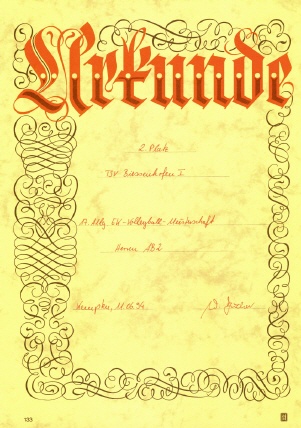 Urkunde
2. Platz
TSV Biessenhofen I
Allg. EK-Volleyball-Meisterschaft
Herren
Kempten, 11.06.94
133